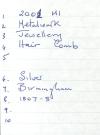 1 2001 HI
2 Metalwork
3 Jewellery
4 Hair Comb
5
6. Silver
7. Birmingham
8. 1807-8
9.
10